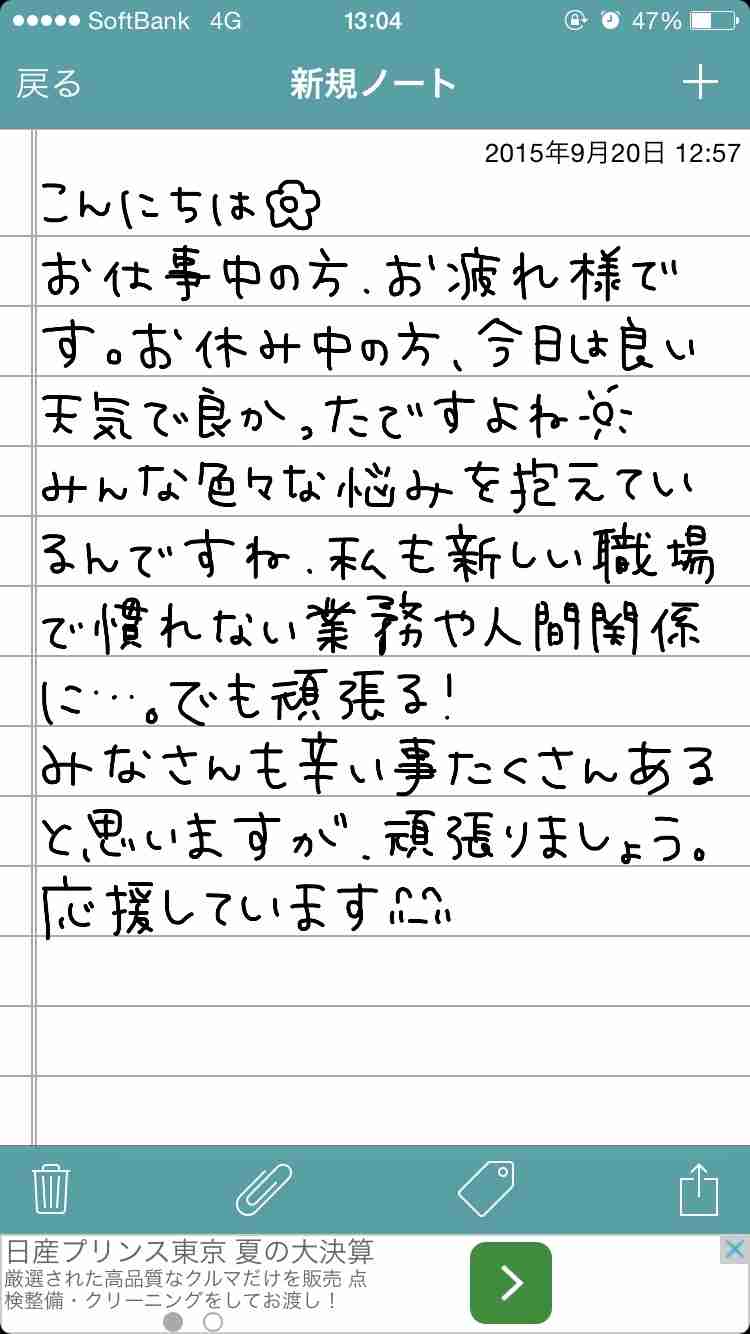 SoftBank 4G 13:04 47%
戻る 新規ノート
2015年9月20日 12:57
こんにちは
お仕事中の方、お疲れ様で
す。お休み中の方、今日は良い
天気で良かったですよね
みんな色々な悩みを抱えてい
るんですね、私も新しい職場
で慣れない業務や人間関係
に…。でも頑張る!
みなさんも辛い事たくさんある
と思いますが、頑張りましょう。
応援しています
日産プリンス東京 夏の大決算
厳選された高品質なクルマだけを販売 点
検整備・クリーニングをしてお渡し！